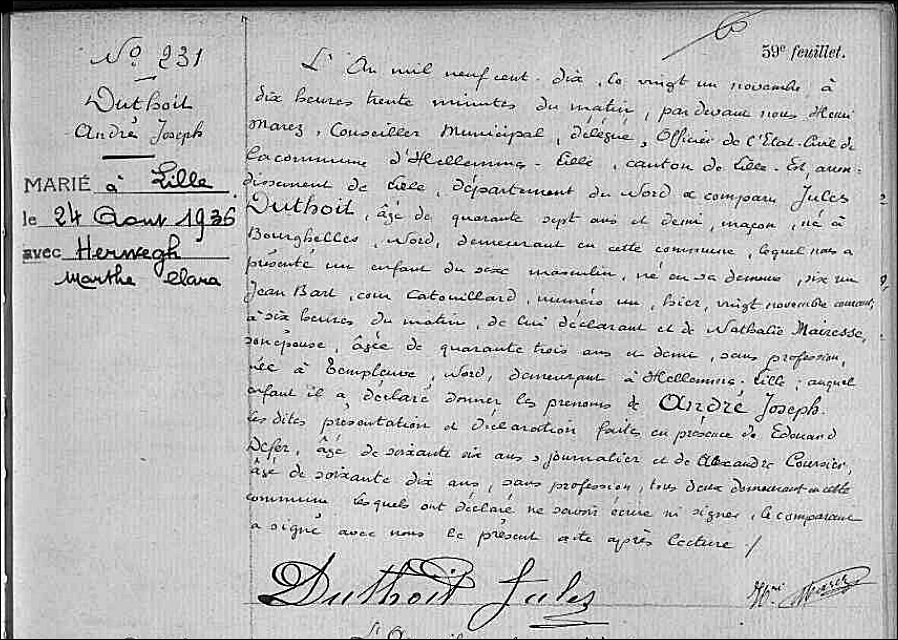 59e feuillet.
No 231
Duthoit
André Joseph
MARIÉ à Lille
le 24 Aout 1936
avec Herwegh
Marthe Clara
L'An mil neuf cent dix, le vingt un novembre à
dix heures trente minutes du matin, par devant nous Henri
Marez, Conseiller Municipal, délégué, Officier de l'Etat-Civil de
la commune d'Hellemmes-Lille, canton de Lille-Est, arron=
dissement de Lille, département du Nord a comparu Jules
Duthoit, âgé de quarante sept ans et demi, maçon, né à
Bourghelles, Nord, demeurant en cette commune, lequel nous a
présenté un enfant du sexe masculin, né en sa demeure, rue
Jean Bart, cour Catouillard, numéro un, hier, vingt novembre courant,
à six heures du matin, de lui déclarant et de Nathalie Mairesse,
son épouse, âgée de quarante trois ans et demi, sans profession,
née à Templeuve, Nord, demeurant à Hellemmes-Lille; auquel
enfant il a déclaré donner les prénoms de André Joseph.
Les dites présentation et déclaration faites en présence de Edouard
Defer, âgé de soixante six ans, journalier et de Alexandre Coursier,
âgé de soixante dix ans, sans profession, tous deux demeurant en cette
commune lesquels ont déclaré ne savoir écrire ni signer, le comparant
a signé avec nous le présent acte après lecture ./
Duthoit Jules
Hri Marez